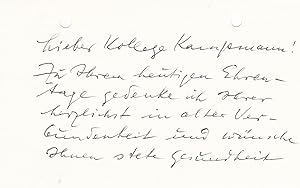 Lieber Kollege Kampmann!
Zu Ihrem heutigen Ehren-
tage gedenke ich Ihrer
herzlichst in alter Ver-
bundenheit und wünsche
Ihnen stete Gesundheit